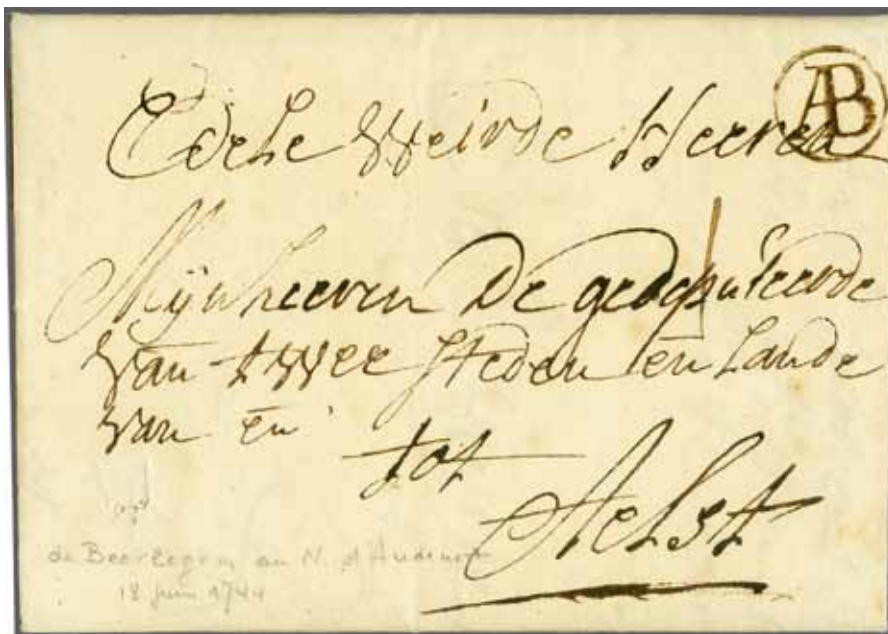 AB
Edele Weirde Heeren
Mijnheeren De gedeputeerde
van twee steden en Lande
van en
tot
Aelst
de Beerlegem au N. d'Audenarde
18 juin 1744